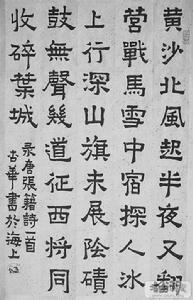 黄沙北風起半夜又翻
營戰馬雪中宿探人冰
上行深山旗未展陰磧
鼓無聲幾道征西将同
收碎葉城
录唐張籍詩一首
古華書於海上